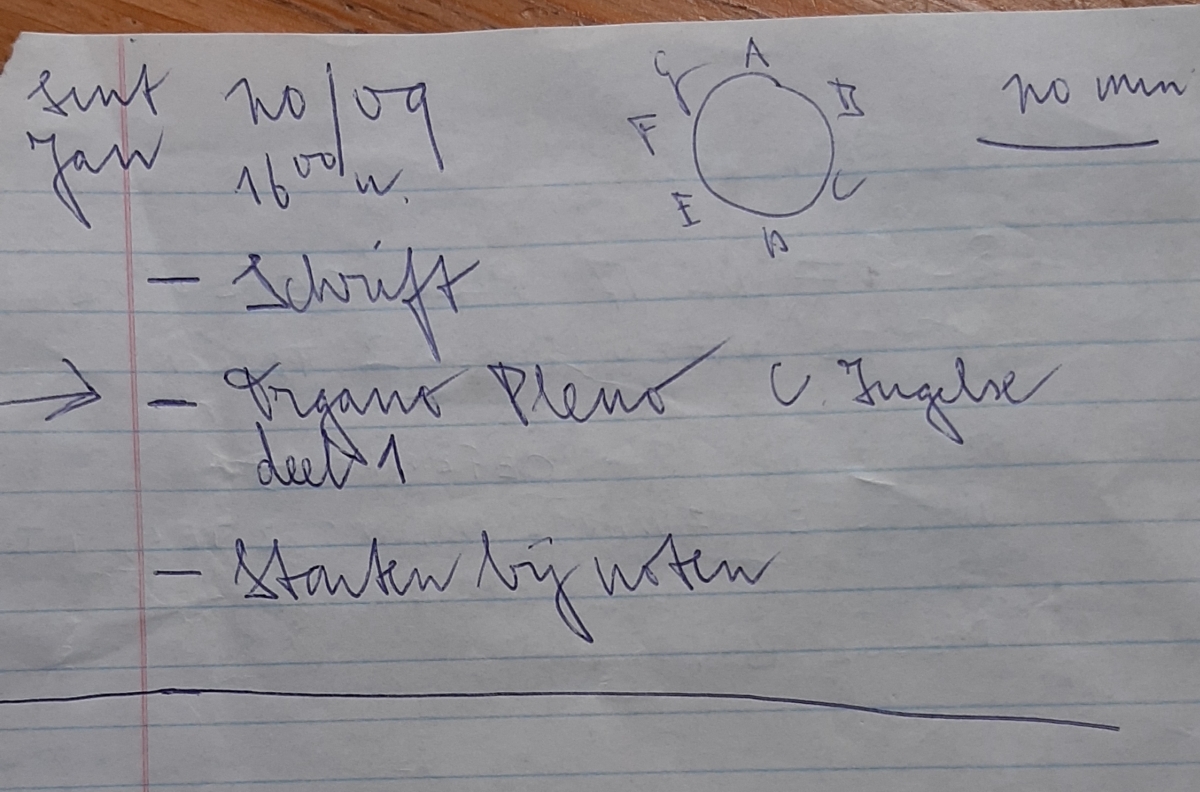 Sint 20/09
Jan 16⁰⁰ u.
G A B C D E F
20 min
- Schrift
→ - Organo Pleno C Ingelse
deel 1
- Starten bij noten